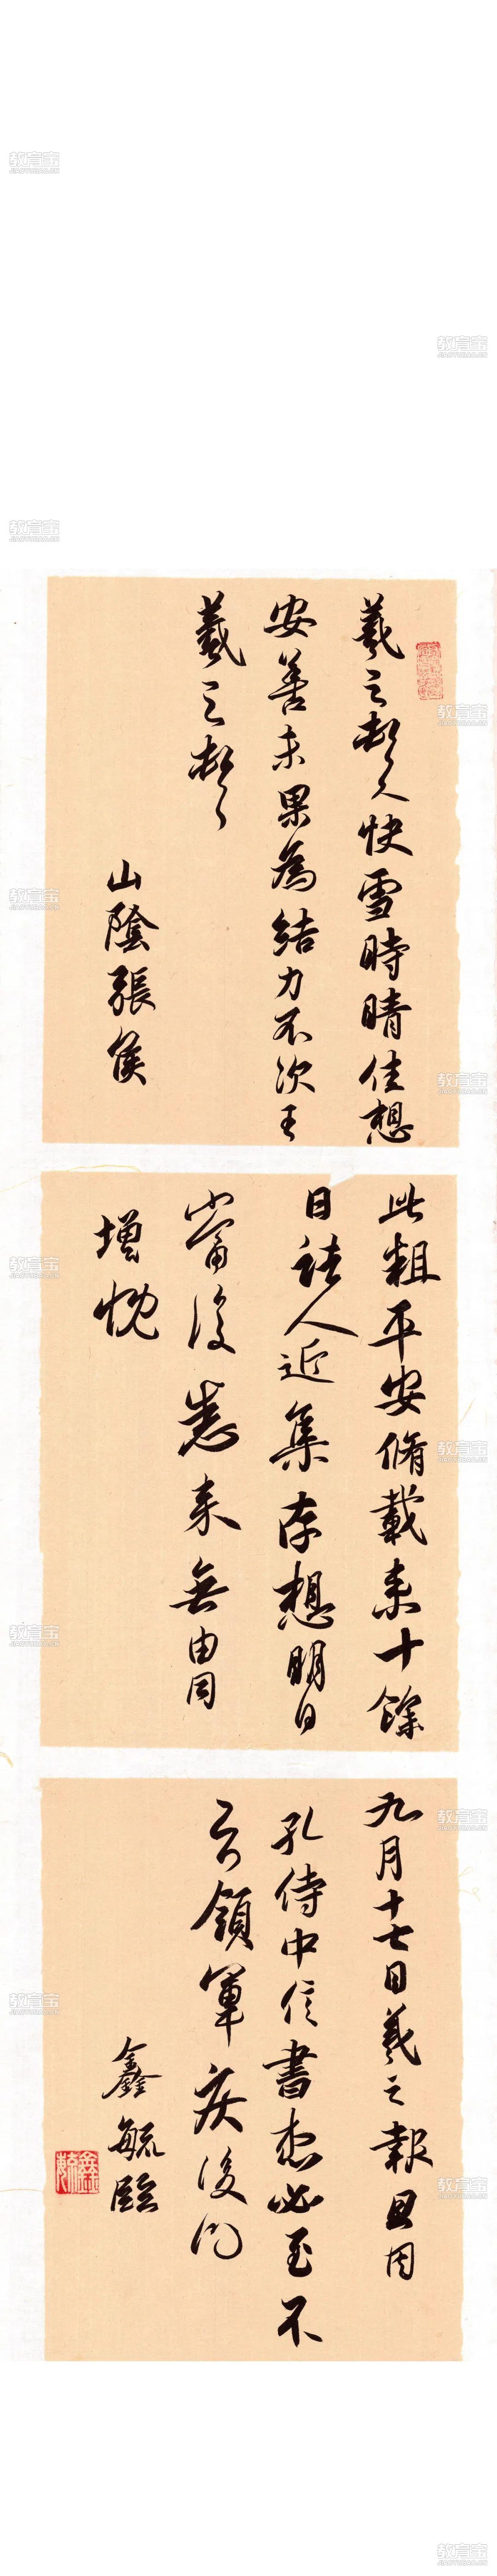 羲之頓首快雪時晴佳想
安善未果為結力不次王
羲之頓首
山陰張侯
此粗平安脩載來十餘
日諸人近集存想明日
當復悉來無由同
增慨
九月十七日羲之報且因
孔侍中信書想必至不
知領軍疾後問
鑫毓臨
教育宝
JIAOYUBAO.CN